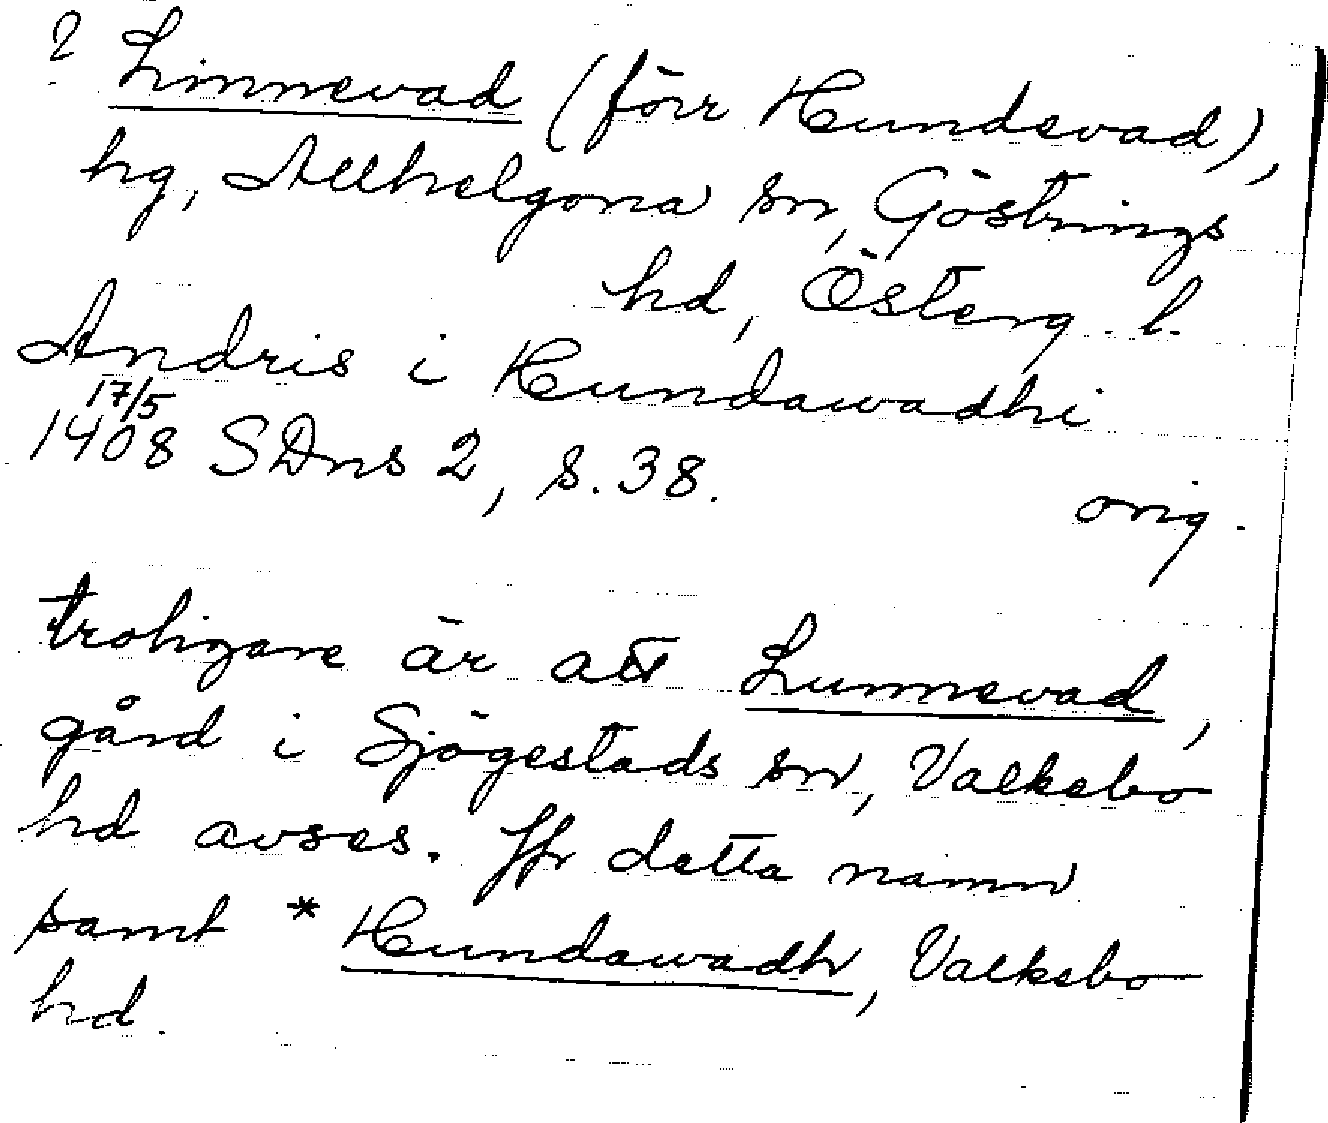 ? Linnevad (förr Hundevad),
hg, Allhelgona sn, Göstrings
hd, Österg. l.
Andris i Hundawadhi
17/5
1408 SDns 2, s. 38.
orig.
troligare är att Lunnevad,
gård i Sjögestads sn, Valkebo
hd avses. Jfr detta namn
samt * Hundawadh, Valkebo
hd.